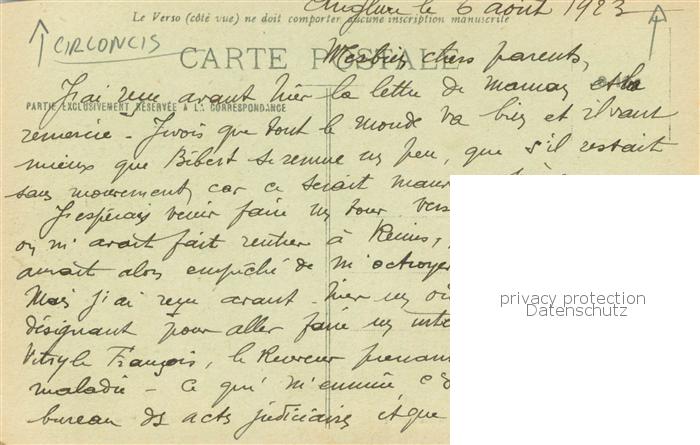 Anglure le 6 août 1923
Le Verso (côté vue) ne doit comporter aucune inscription manuscrite
CIRCONCIS
CARTE POSTALE
Mes biens chers parents,
J'ai reçu avant hier la lettre de Maman et la
PARTIE EXCLUSIVEMENT RÉSERVÉE A LA CORRESPONDANCE
remercie. Je vois que tout le monde va bien et il vaut
mieux que Bébert se remue un peu, que s'il restait
sans mouvement, car ce serait
J'espérais venir faire un tour vers
on m'avait fait rentrer à Reims,
aurait alors empêché de m'octroyer
Mais j'ai reçu avant-hier un
désignant pour aller faire un
Vitry le François, le Receveur
maladie - Ce qui m'ennuie c
bureau des acts judiciaires et que
privacy protection
Datenschutz